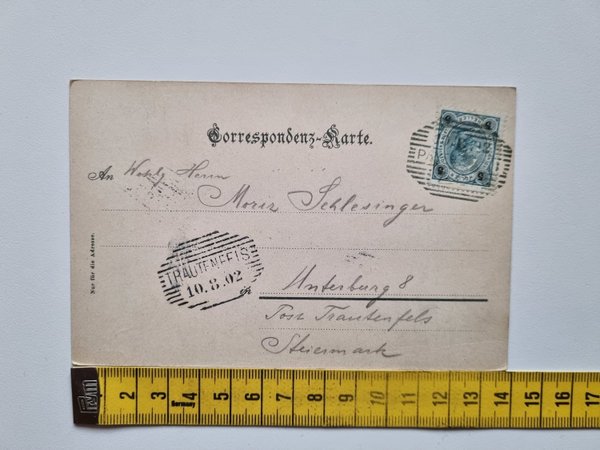 Correspondenz-Karte.
An Wohlg Herrn
Moriz Schlesinger
TRAUTENFELS
10.8.02
in
Unterburg 8
Post Trautenfels
Steiermark
Nur für die Adresse.
5 5
2 3 4 5 6 7 8 9 10 11 12 13 14 15 16 17
Germany